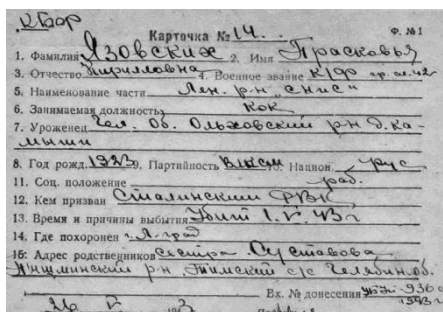 КБФ
Ф. №1
Карточка № 14.
1. Фамилия Язовских 2. Имя Прасковья
3. Отчество Кирилловна 4. Военное звание к/ф
5. Наименование части Лен. р-н "СНиС"
6. Занимаемая должность кок
7. Уроженец Чел. Об. Ольховский р-н д. Ка-
мыши
8. Год рожд. 1923 9. Партийность ВЛКСМ 10. Национ. рус
11. Соц. положение раб.
12. Кем призван Сталинский РВК
13. Время и причины выбытия Убит 1.V.43 г
14. Где похоронен г. Л-град
15. Адрес родственников сестра Суставова
р-н с/с Челябин. об.
Вх. № донесения 936
26 V